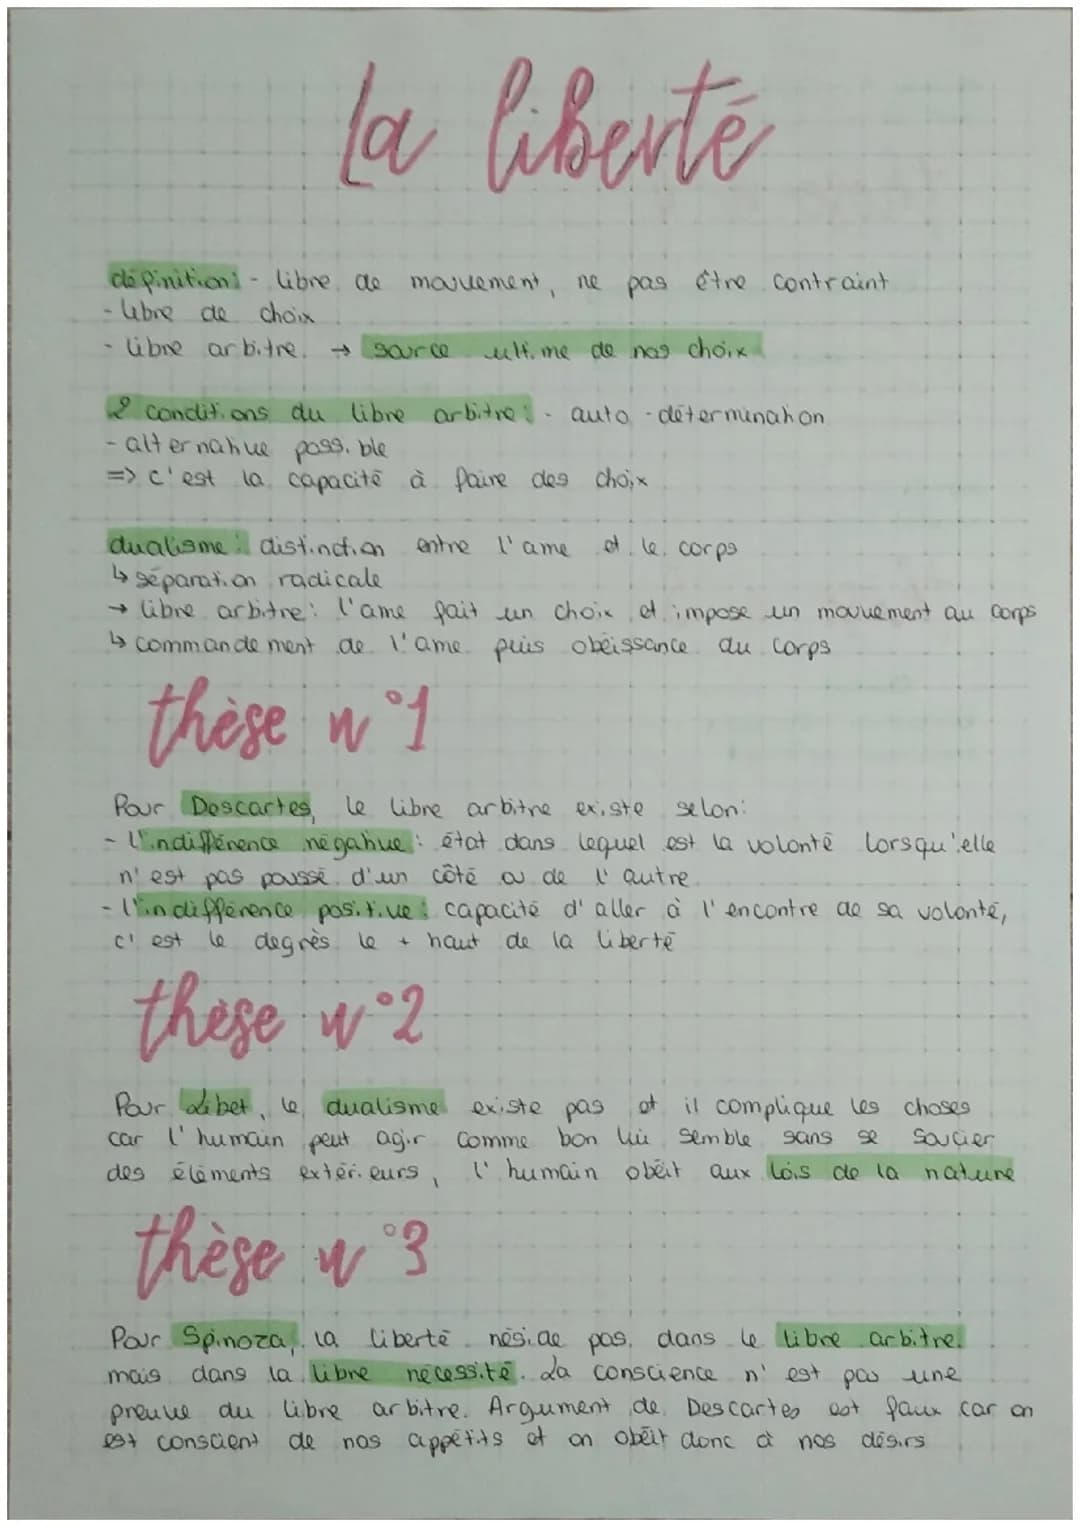 La liberté
définition: - libre de mouvement, ne pas être contraint
- libre de choix
- libre arbitre. → source ultime de nos choix
2 conditions du libre arbitre: - auto-détermination
- alternative possible
=> c'est la capacité à faire des choix
dualisme: distinction entre l'ame et le corps
↳ séparation radicale
→ libre arbitre: l'ame fait un choix et impose un mouvement au corps
↳ commandement de l'ame puis obéissance du corps
thèse n°1
Pour Descartes, le libre arbitre existe selon:
- l'indifférence négative: état dans lequel est la volonté lorsqu'elle
n'est pas poussé d'un côté ou de l'autre
- l'indifférence positive: capacité d'aller à l'encontre de sa volonté,
c'est le degrès le + haut de la liberté
thèse n°2
Pour Libet, le dualisme existe pas et il complique les choses
car l'humain peut agir comme bon lui semble sans se soucier
des éléments extérieurs, l'humain obéit aux lois de la nature
thèse n°3
Pour Spinoza, la liberté réside pas dans le libre arbitre.
mais dans la libre nécessité. La conscience n'est pas une
preuve du libre arbitre. Argument de Descartes est faux car on
est conscient de nos appétits et on obéit donc à nos désirs